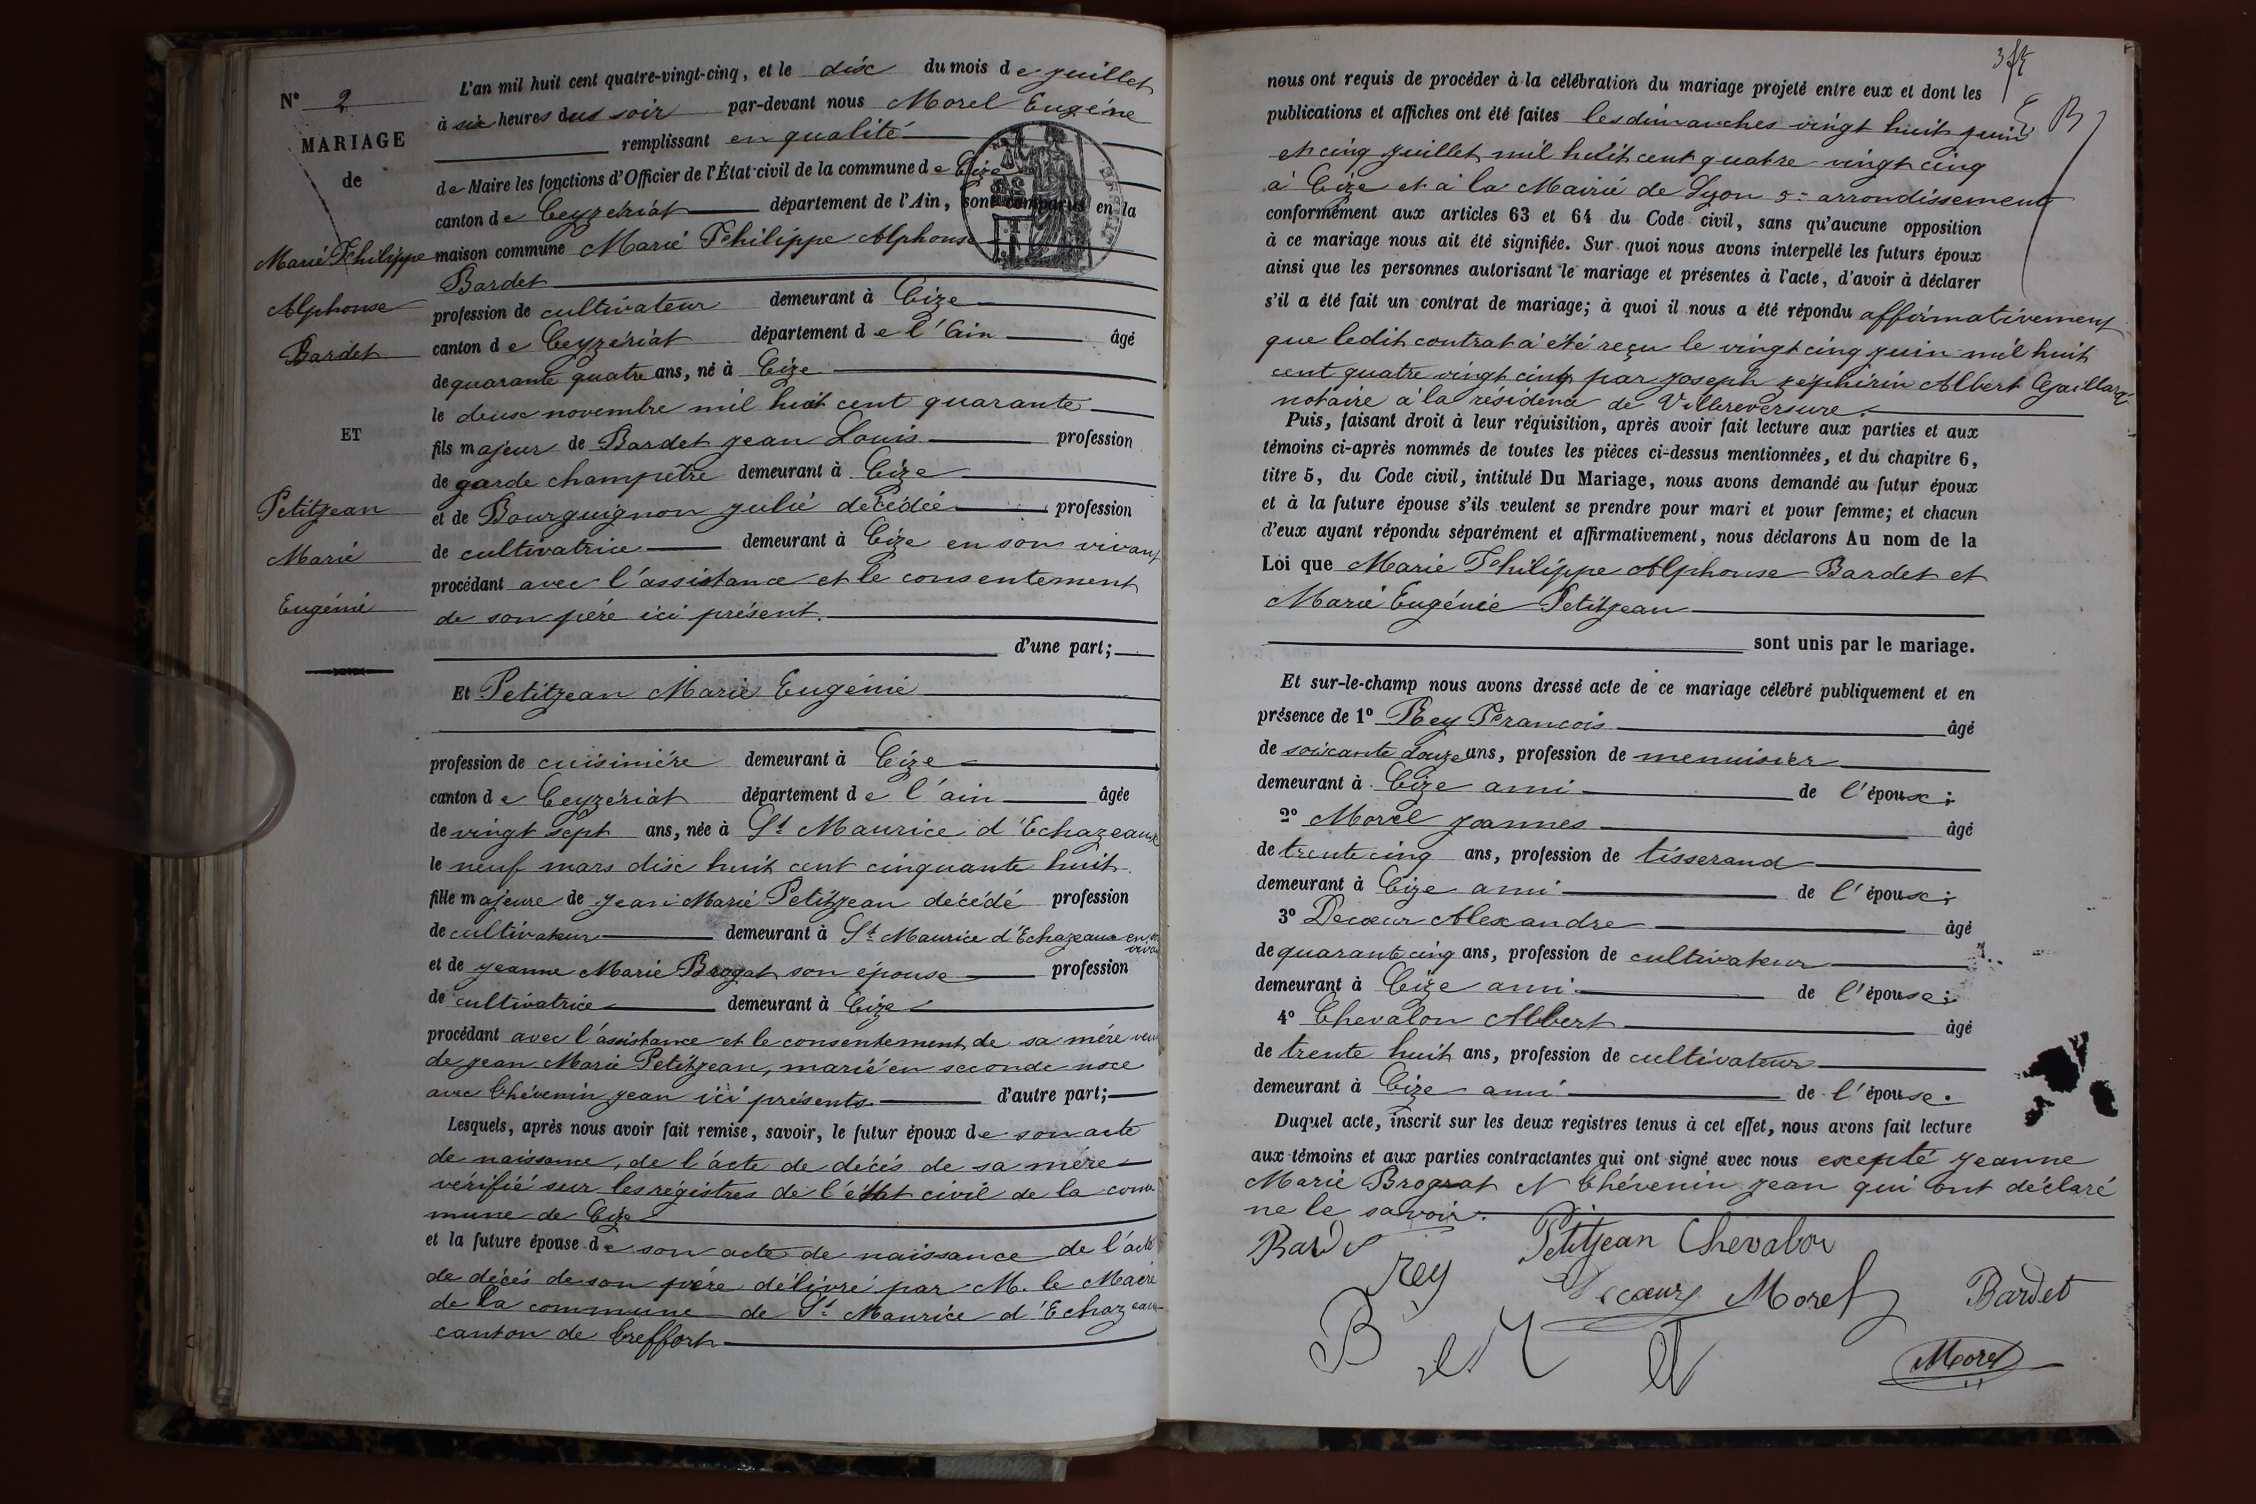 N° 2
MARIAGE
de
Marie Philippe
Alphonse
Bardet
ET
Petitjean
Marie
Eugénie
L'an mil huit cent quatre-vingt-cinq, et le dix du mois de juillet
à six heures du soir par-devant nous Morel Eugéne
remplissant en qualité
de Maire les fonctions d'Officier de l'État civil de la commune de Cize
canton de Ceyzériat département de l'Ain, sont comparus en la
maison commune Marie Philippe Alphonse
Bardet
profession de cultivateur demeurant à Cize
canton de Ceyzériat département de l'Ain âgé
de quarante quatre ans, né à Cize
le deux novembre mil huit cent quarante
fils majeur de Bardet Jean Louis profession
de garde champêtre demeurant à Cize
et de Bourguignon Julie décédée profession
de cultivatrice demeurant à Cize en son vivant
procédant avec l'assistance et le consentement
de son père ici présent.
d'une part;
Et Petitjean Marie Eugénie
profession de cuisinière demeurant à Cize
canton de Ceyzériat département de l'ain âgée
de vingt sept ans, née à St Maurice d'Echazeaux
le neuf mars dix huit cent cinquante huit.
fille majeure de Jean Marie Petitjean décédé profession
de cultivateur demeurant à St Maurice d'Echazeaux en son vivant
et de Jeanne Marie Brogat son épouse profession
de cultivatrice demeurant à Cize
procédant avec l'assistance et le consentement de sa mère veuve
de Jean Marie Petitjean, marié en seconde noce
avec Chévenin Jean ici présents. d'autre part;
Lesquels, après nous avoir fait remise, savoir, le futur époux de son acte
de naissance, de l'acte de décés de sa mére
vérifié sur les régistres de l'état civil de la com-
mune de Cize
et la future épouse de son acte de naissance de l'acte
de décés de son père délivré par M. le Maire
de la commune de St Maurice d'Echazeaux
canton de Treffort
nous ont requis de procéder à la célébration du mariage projeté entre eux et dont les
publications et affiches ont été faites les dimanches vingt huit juin
et cinq juillet mil huit cent quatre vingt cinq
à Cize et à la Mairie de Lyon 5e arrondissement
conformément aux articles 63 et 64 du Code civil, sans qu'aucune opposition
à ce mariage nous ait été signifiée. Sur quoi nous avons interpellé les futurs époux
ainsi que les personnes autorisant le mariage et présentes à l'acte, d'avoir à déclarer
s'il a été fait un contrat de mariage; à quoi il nous a été répondu affirmativement
que ledit contrat a été reçu le vingt cinq juin mil huit
cent quatre vingt cinq par Joseph zéphirin Albert Gaillard
notaire à la résidence de Villereversure.
Puis, faisant droit à leur réquisition, après avoir fait lecture aux parties et aux
témoins ci-après nommés de toutes les pièces ci-dessus mentionnées, et du chapitre 6,
titre 5, du Code civil, intitulé Du Mariage, nous avons demandé au futur époux
et à la future épouse s'ils veulent se prendre pour mari et pour femme; et chacun
d'eux ayant répondu séparément et affirmativement, nous déclarons Au nom de la
Loi que Marie Philippe Alphonse Bardet et
Marie Eugénie Petitjean
sont unis par le mariage.
Et sur-le-champ nous avons dressé acte de ce mariage célébré publiquement et en
présence de 1° Rey Francois âgé
de soixante douze ans, profession de menuisier
demeurant à Cize ami de l'époux;
2° Morel Joannes âgé
de trente cinq ans, profession de tisserand
demeurant à Cize ami de l'époux;
3° Decoeur Alexandre âgé
de quarante cinq ans, profession de cultivateur
demeurant à Cize ami de l'épouse;
4° Chevalon Albert âgé
de trente huit ans, profession de cultivateur
demeurant à Cize ami de l'épouse.
Duquel acte, inscrit sur les deux registres tenus à cet effet, nous avons fait lecture
aux témoins et aux parties contractantes qui ont signé avec nous excepté Jeanne
Marie Brogat et Chévenin Jean qui ont déclaré
ne le savoir.
Bardet Petitjean Chevalon
rey Decoeur Morel Bardet
Morel